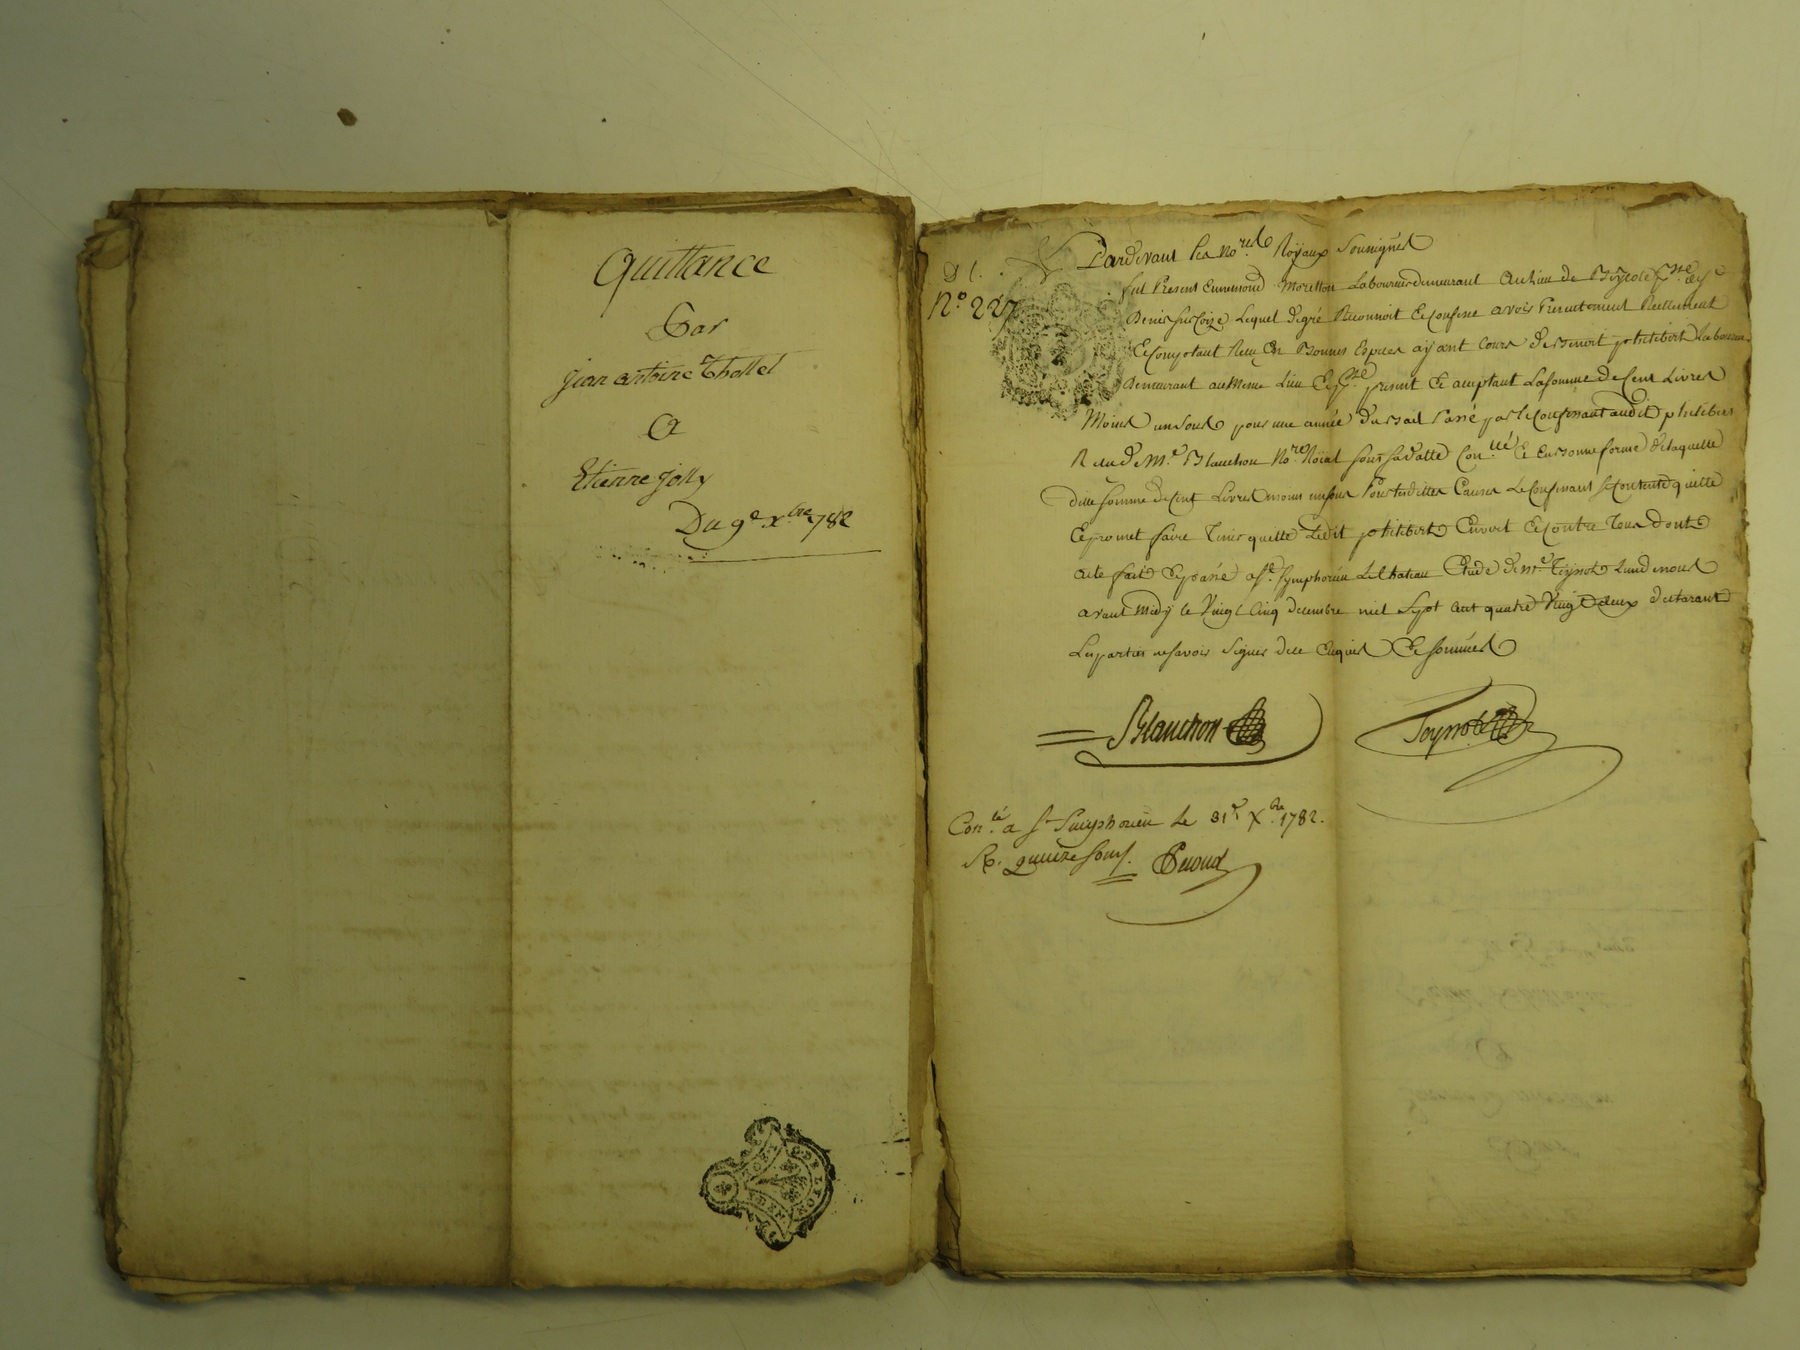 Quittance
Par
jean antoine Thollet
A
Etienne jolly
Du 9e xbre 1782
N° 227
Pardevant les Nores Royaux Soussignés
fut Present Ennemond Laboureur demeurant au lieu de
Denis sur Coize Lequel de gré Reconnoit & Confesse avoir Presentement Reellement
& Comptant Recu En Bonnes Especes ayant Cours de Benoit philibert Laboureur
Demeurant au Meme Lieu & psse present & acceptant La somme de Cent Livres
Moins un sous pour une année du Bail Passé par le Confessant audit philibert
Recu de Me Blanchon Nore Royal sous sa datte Conllé & En bonne forme De laquelle
ditte somme de Cent Livres moins un sous Pour lesdittes Causes Le Confessant se Contente quitte
& promet faire Tenir quitte Ledit philibert Envers & Contre Tous dont
acte fait & passé a St Symphorien Le Chateau Etude de Me Teyssot L'un de nous
avant Midy le Vingt Cinq decembre mil Sept Cent quatre Vingt Deux declarant
Les parties ne savoir Signer de ce Enquis & Sommés
Blanchon
Teyssot
Conllé a St Simphorien le 31e Xbre 1782.
R. quinze sous.